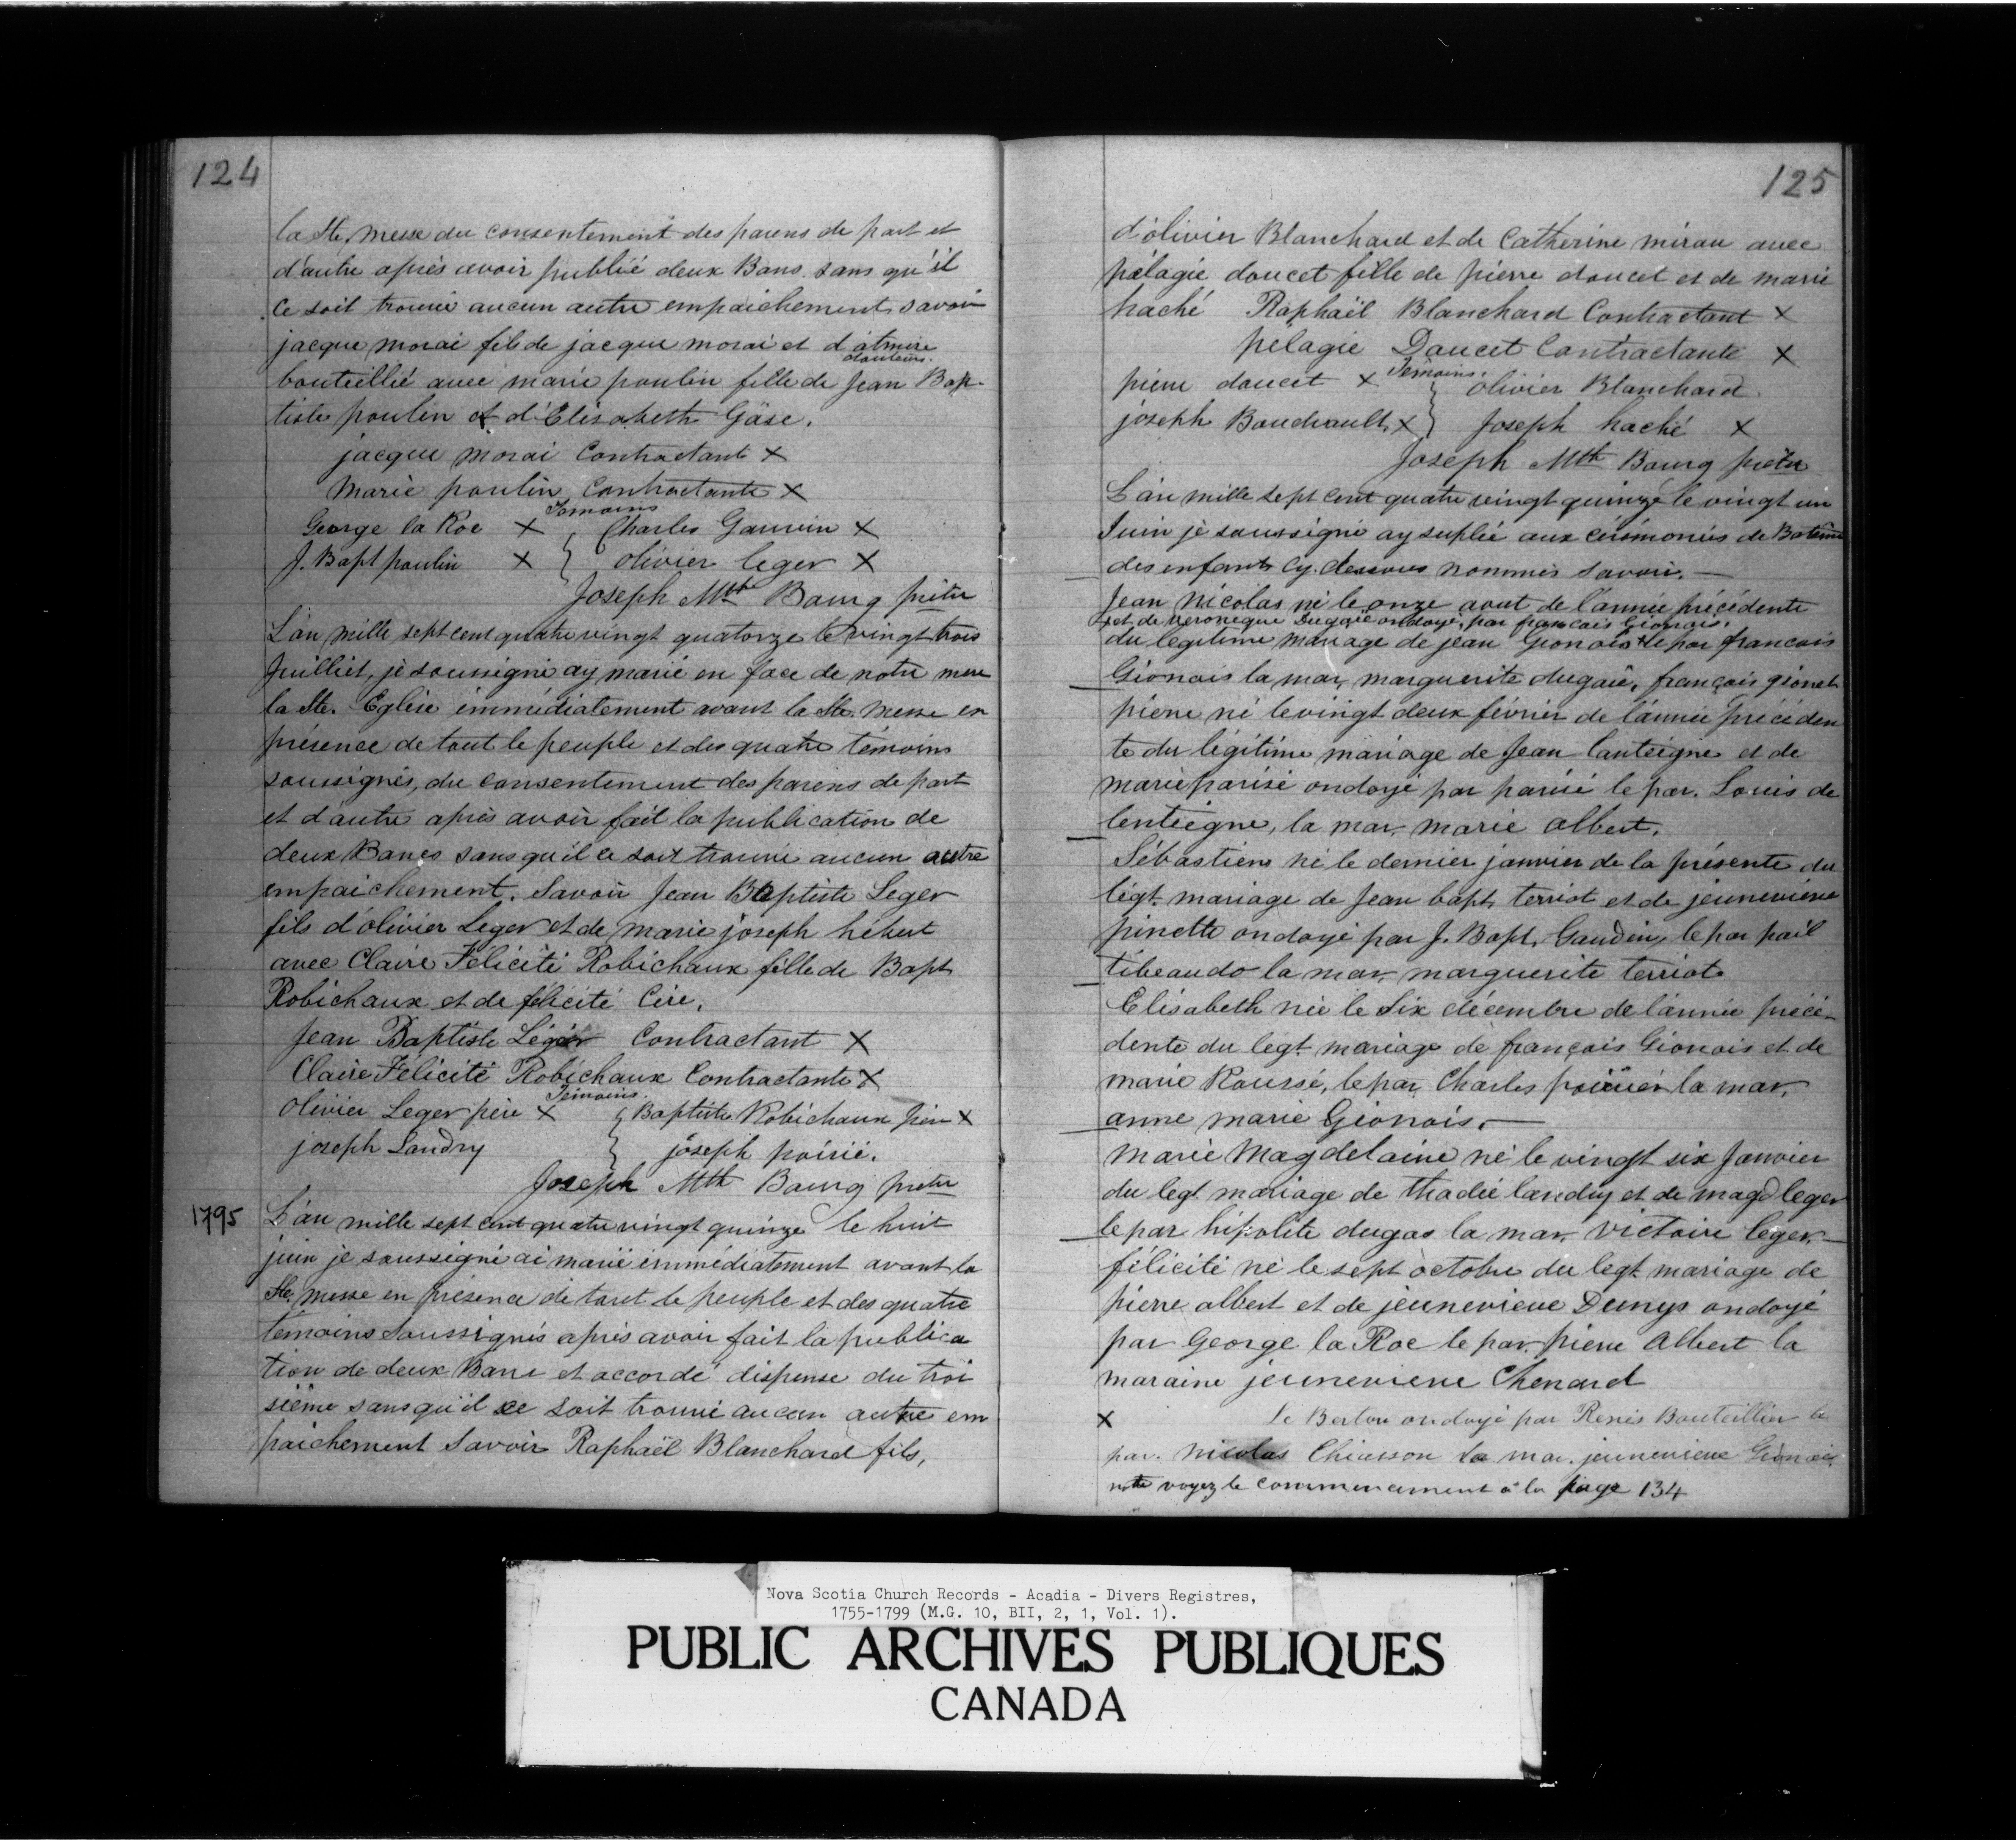 124
la Ste. Messe du consentement des parens de part et
d'autre après avoir publiié deux Bans sans qu'il
ce soit trouvé aucun autre empaichement, savoir
jacque morai fils de jacque morai et d'
bouteillié avec marie poulin fille de Jean Bap-
tiste poulin et d'Elisabeth Gäse.
jacque morai Contractant X
Marie poulin, Contractante X
Temoins
George la Roe X } Charles Gauvin X
J. Bapt poulin X } olivier leger X
Joseph Mth Bourg prêtre
L'an mille sept cent quatre vingt quatorze le vingt trois
Juilliet, je soussigné ay marié en face de notre mere
la Ste. Eglise immédiatement avant la Ste. Messe en
présence de tout le peuple et des quatre témoins
soussignés, du consentement des parens de part
et d'autre après avoir fait la publication de
deux Bancs sans qu'il ce soit trouvé aucun autre
empaichement. Savoir Jean Baptiste Leger
fils d'olivier Leger et de marie joseph hébert
avec Claire Félicité Robichaux fille de Bapt
Robichaux et de félicité Cire.
Jean Baptiste Léger Contractant X
Claire Félicité Robichaux Contractante X
Temoins.
Olivier Leger père X { Baptiste Robichaux père X
joseph Landry } joseph poirié.
Joseph Mth Bourg prêtre
1795 L'an mille sept cent quatre vingt quinze le huit
juin je soussigné ai marié immédiatement avant la
Ste. messe en présence de tout le peuple et des quatre
témoins soussignés après avoir fait la publica
tion de deux Bans et accordé dispense du troi
sième sans qu'il ce soit trouvé aucun autre em
paichement Savoir Raphaël Blanchard fils,
125
d'olivier Blanchard et de Catherine mirau avec
pélagie doucet fille de pierre doucet et de marie
haché Raphaël Blanchard Contractant X
pélagie Doucet Contractante X
Temoins.
pierre doucet X } olivier Blanchard
joseph Boudrault X } Joseph haché X
Joseph Mth Bourg prêtre
L'an mille sept cent quatre vingt quinze le vingt un
Juin je soussigné ay suplié aux cérémonies de Batême
des enfants cy. dessous nommés savoir. —
Jean Nicolas né le onze aout de l'année précédente
+ et de veronique Dugaié ondoyé, par francais Gionais.
du légitime mariage de jean Gionois + le par francois
Gionois la mar. marguerite dugaié, françois gionet
pierre né le vingt deux février de l'année précéden
te du légitime mariage de Jean lanteigne et de
marie parisé ondoyé par parisé le par. Louis de
lenteigne, la mar. marie albert.
Sébastien né le dernier janvier de la présente du
légt. mariage de Jean bapt. terriot et de jeunevieve
pinette ondoyé par J. Bapt. Gaudin, le par pail
tibeaudo la mar. marguerite terriot
Elisabeth née le Six décembre de l'année précé-
dente du legt. mariage de françois Gionois et de
marie Roussé, le par Charles poirier la mar.
anne marie Gionois. —
Marie Magdelaine né le vingt six Janvier
du legt. mariage de thadée landry et de magd leger
le par hipolite dugas la mar. victoire leger. —
félicité né le sept octobre du legt. mariage de
pierre albert et de jeunevieve Denys ondoyé
par George la Roe le par. pierre Albert la
maraine jeunevieve Chenard
X Le Berton ondoyé par Renés Bouteillier le
par. Nicolas Chiasson la mar. jeunevieve Gionois
note voyez le commencement à la page 134
Nova Scotia Church Records - Acadia - Divers Registres,
1755-1799 (M.G. 10, BII, 2, 1, Vol. 1).
PUBLIC ARCHIVES PUBLIQUES
CANADA